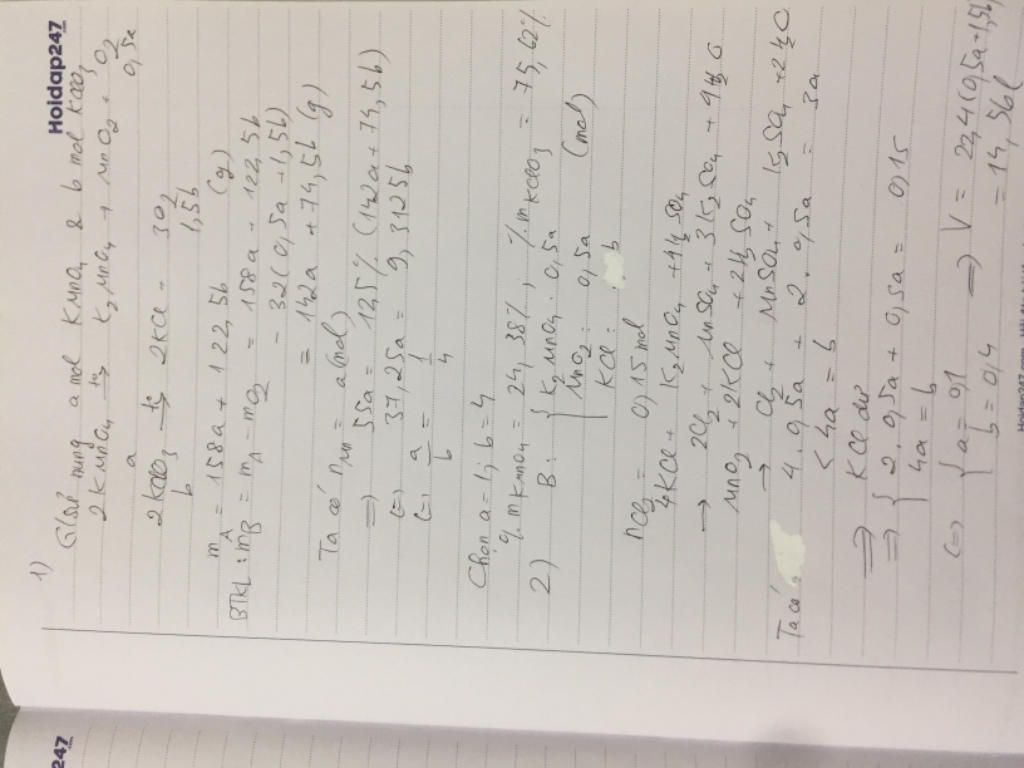 Hoidap247
1) Giả sử nung a mol KMnO4 & b mol KClO3
2KMnO4 t°→ K2MnO4 + MnO2 + O2
a 0,5a
2KClO3 t°→ 2KCl + 3O2
b 1,5b
mA = 158a + 122,5b (g)
BTKL: mB = mA - mO2 = 158a + 122,5b
- 32(0,5a + 1,5b)
= 142a + 74,5b (g)
Ta có nMn = a (mol)
=> 55a = 12,5% (142a + 74,5b)
(=) 37,25a = 9,3125b
(=) a/b = 1/4
Chọn a = 1; b = 4
% mKMnO4 = 24,38%; %mKClO3 = 75,62%
2) B: { K2MnO4: 0,5a
MnO2: 0,5a (mol)
KCl: b
nCl2 = 0,15 mol
4KCl + K2MnO4 + 4H2SO4
→ 2Cl2 + MnSO4 + 3K2SO4 + 4H2O
MnO2 + 2KCl + 2H2SO4
→ Cl2 + MnSO4 + K2SO4 + 2H2O
Ta có 4.0,5a + 2.0,5a = 3a
< 4a = b
=> KCl dư
=> { 2.0,5a + 0,5a = 0,15
4a = b
(=) { a = 0,1 => V = 22,4(0,5a+1,5b)
b = 0,4 = 14,56l
247